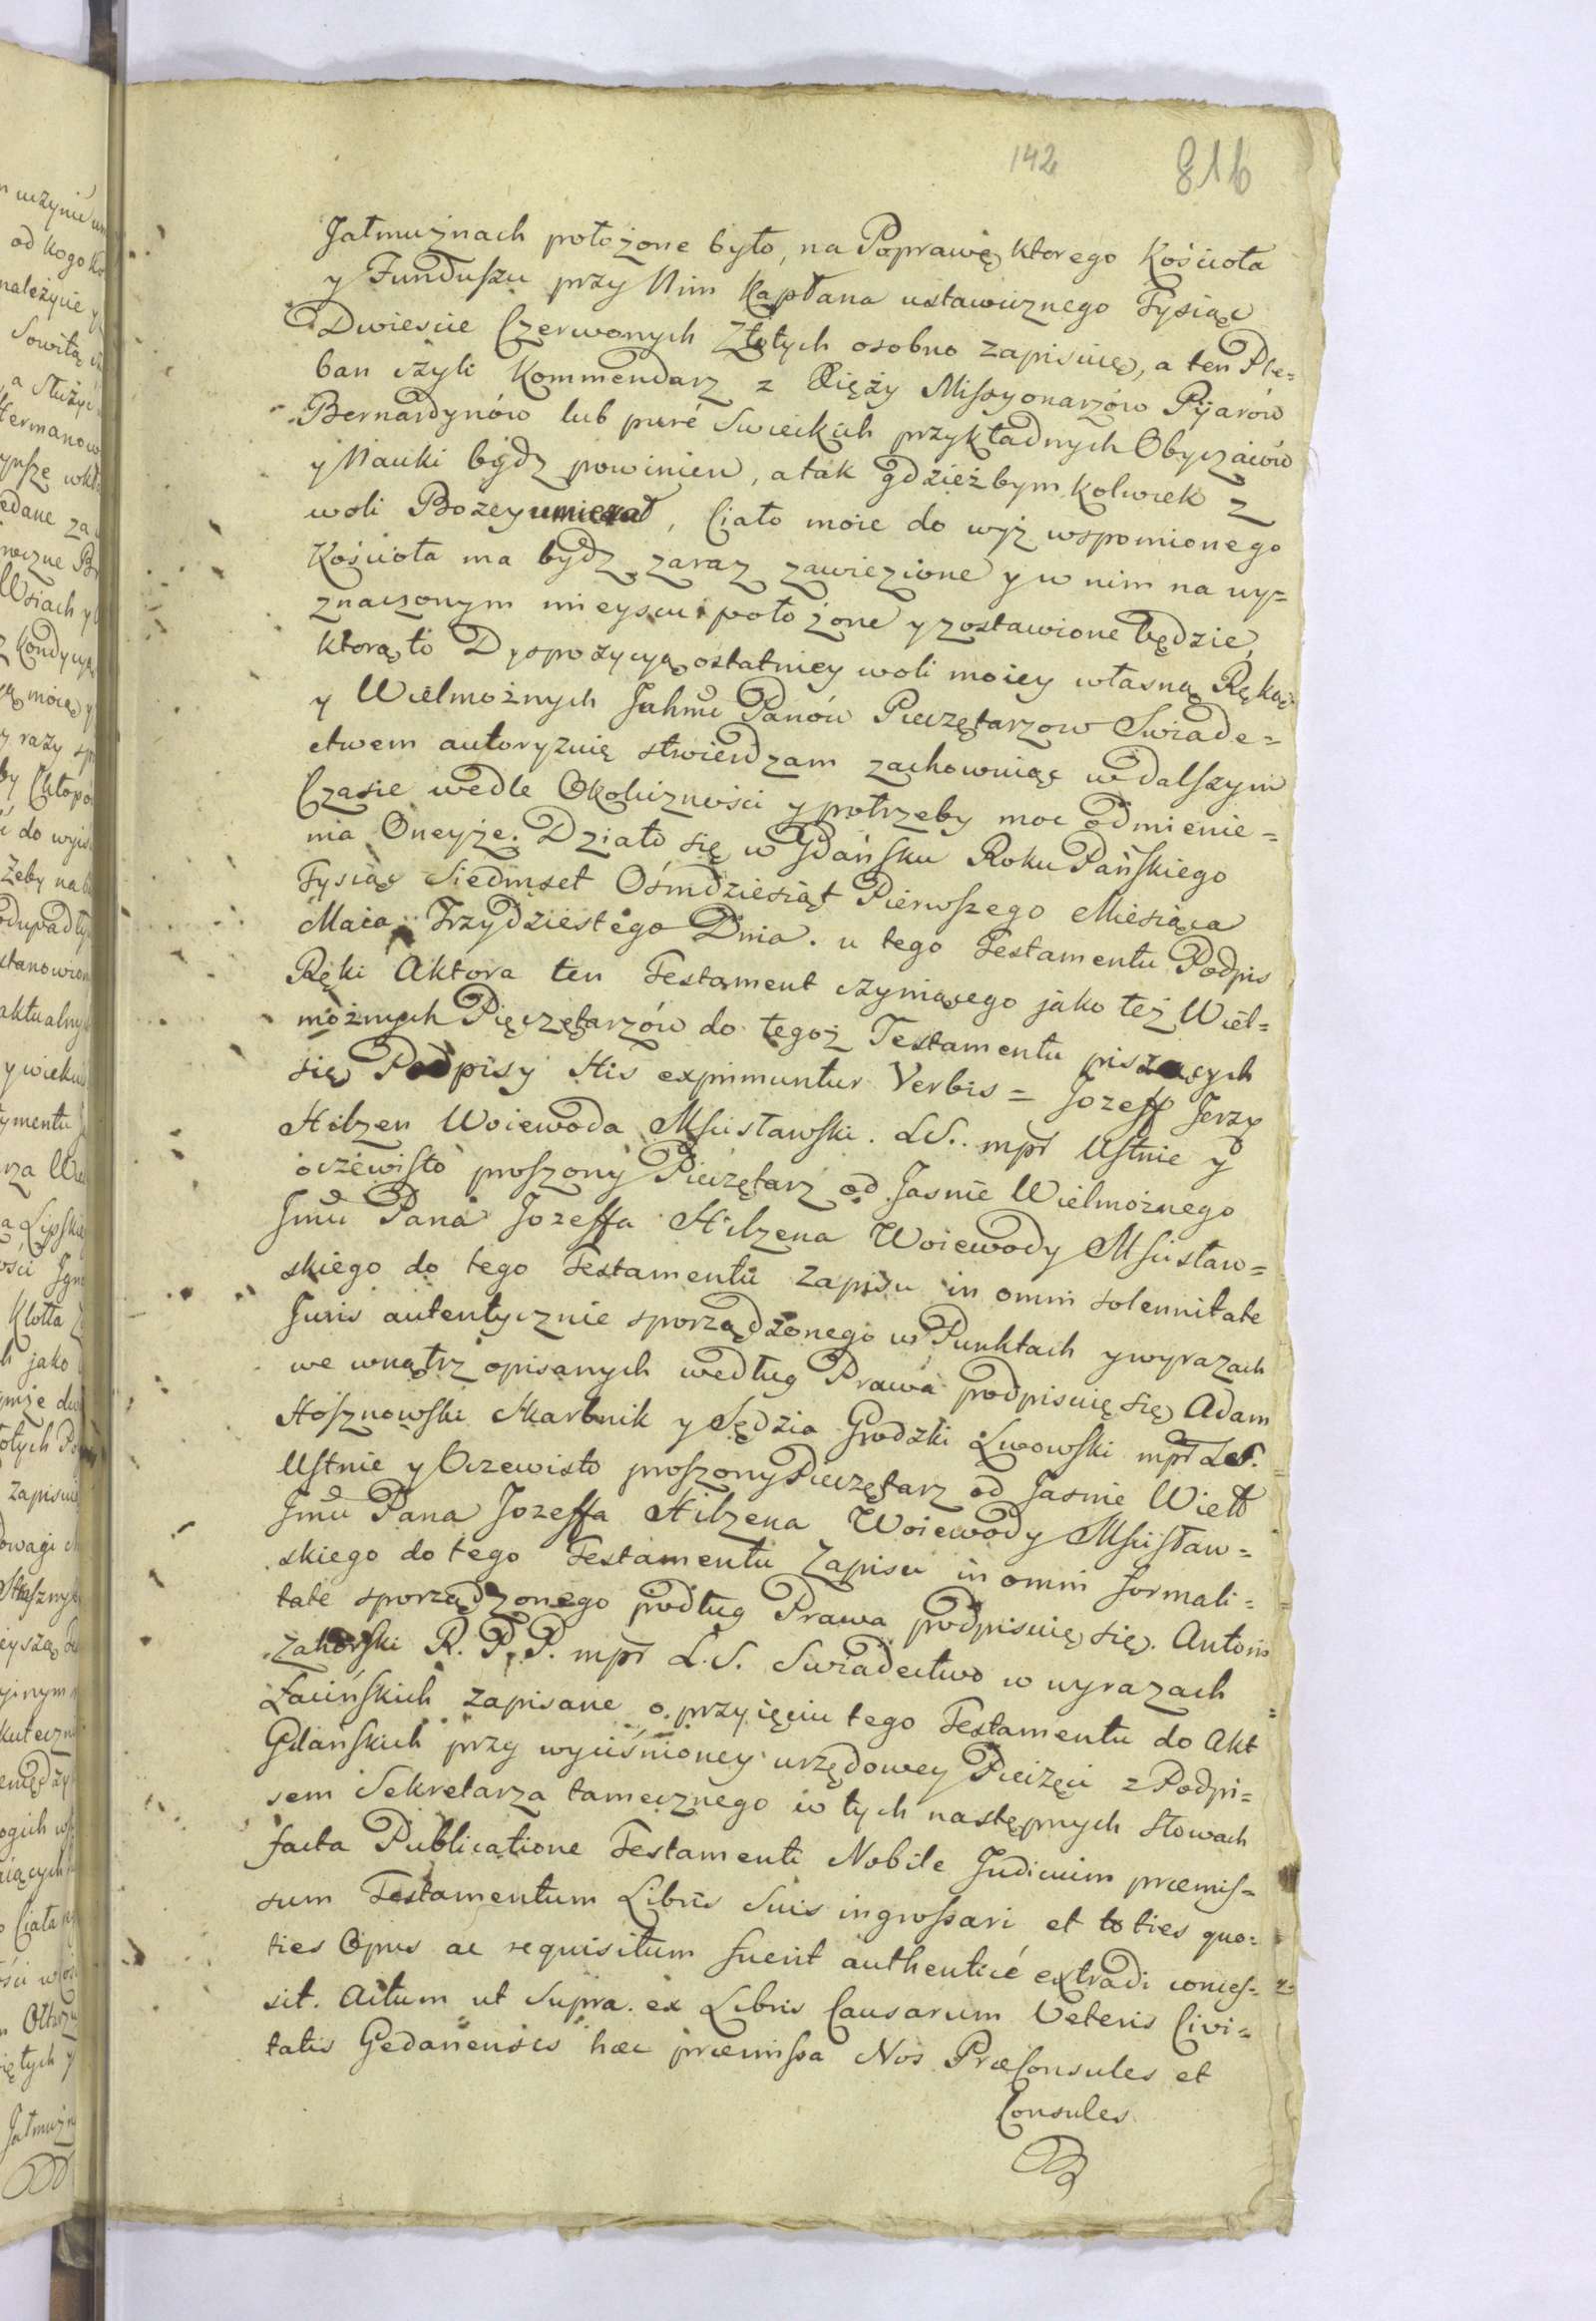 142 816
Jałmużnach położone było, na Poprawię ktorego Kościoła
y Funduszu przy Nim Kapłana ustawicznego Tysiąc
Dwiescie Czerwonych Złotych osobno zapisuię, a ten Ple=
ban czyli Kommendarz z Xięży Missyonarzów Pijarów
Bernardynów lub puré Swieckich przykładnych Obyczaiów
y Nauki bydz powinien, a tak gdzieżbym kolwiek z
woli Bozey umierał, Ciało moie do wyż wspomionego
Kościoła ma bydz zaraz zawiezione y w nim na wy=
znaczonym mieyscu położone y zostawione będzie,
ktorą to Dyspozycyą ostatniey woli moiey własną Ręką
y Wielmożnych Jchmć Panów Pieczętarzow Swiade=
ctwem autoryzuię stwierdzam zachowuiąc w dalszym
Czasie wedle Okoliczności y potrzeby moc odmienie=
nia Oneyże. Działo się w Gdańsku Roku Pańskiego
Tysiąc Siedmset Ośmdziesiąt Pierwszego Miesiąca
Maia Trzydziestego Dnia. u tego Testamentu Podpis
Ręki Aktora ten Testament czyniącego jako też Wiel=
możnych Pięczętarzów do tegoż Testamentu piszących
się Podpisy His exprimuntur Verbis = Jozeff Jerzy
Hilzen Woiewoda Mscisławski. L.S. mpr Ustnie y
oczewisto proszony Pieczętarz od Jasnie Wielmożnego
Jmći Pana Jozeffa Hilzena Woiewody Mscisław=
skiego do tego Testamentu Zapisu in omni solennitate
Juris autentycznie sporządzonego w Punktach y wyrazach
we wnątrz opisanych według Prawa podpisuię się Adam
Hosznowski Skarbnik y Sędzia Grodzki Lwowski mpr LS.
Ustnie y Oczewisto proszony Pieczętarz od Jasnie Wiel
Jmći Pana Jozeffa Hilzena Woiewody Mscisław=
skiego do tego Testamentu Zapisu in omni formali=
tate sporządzonego podług Prawa podpisuię się. Antoni
Zahorski R. P. P. mpr L.S. Swiadectwo w wyrazach
Łacińskich zapisane o przyięciu tego Testamentu do Akt
Gdańskich przy wyciśnioney urzędowey Pieczęci z Podpi=
sem Sekretarza tamecznego w tych następnych słowach
facta Publicatione Testamenti Nobile Judicium præmis=
sum Testamentum Libris Suis ingrossari et toties quo=
ties Opus ac requisitum fuerit authenticé extradi conces=
sit. Actum ut Supra. ex Libris Causarum Veteris Civi=
tatis Gedanensis hæc præmissa Nos PræConsules et
Consules